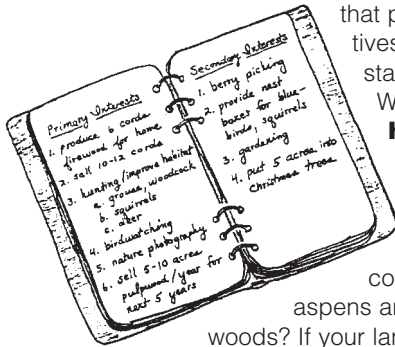 that p
tives
sta
W
h
co
aspens an
woods? If your lar
Primary Interests
1. produce 6 cords
firewood for home
2. sell 10-12 cords
3. hunting/improve habitat
a. grouse, woodcock
b. squirrels
c. deer
4. birdwatching
5. nature photography
6. sell 5-10 acres
pulpwood/year for
next 5 years
Secondary Interests
1. berry picking
2. provide nest
boxes for blue-
birds, squirrels
3. gardening
4. put 5 acres into
Christmas trees